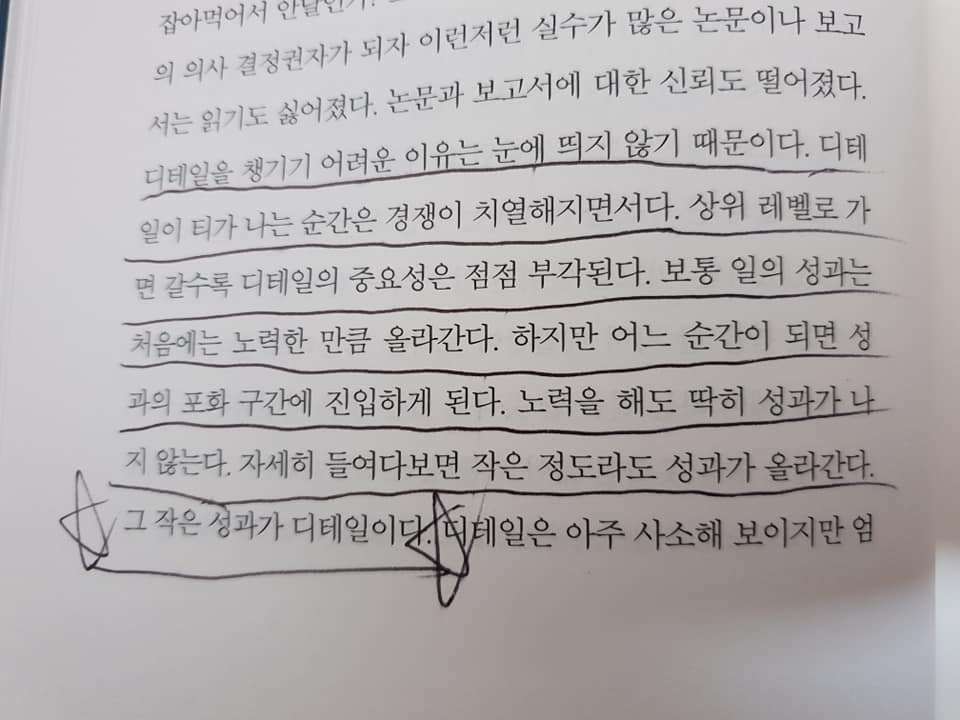 잡아먹어서 안달인가?
의 의사 결정권자가 되자 이런저런 실수가 많은 논문이나 보고
서는 읽기도 싫어졌다. 논문과 보고서에 대한 신뢰도 떨어졌다.
디테일을 챙기기 어려운 이유는 눈에 띄지 않기 때문이다. 디테
일이 티가 나는 순간은 경쟁이 치열해지면서다. 상위 레벨로 가
면 갈수록 디테일의 중요성은 점점 부각된다. 보통 일의 성과는
처음에는 노력한 만큼 올라간다. 하지만 어느 순간이 되면 성
과의 포화 구간에 진입하게 된다. 노력을 해도 딱히 성과가 나
지 않는다. 자세히 들여다보면 작은 정도라도 성과가 올라간다.
그 작은 성과가 디테일이다. 디테일은 아주 사소해 보이지만 엄